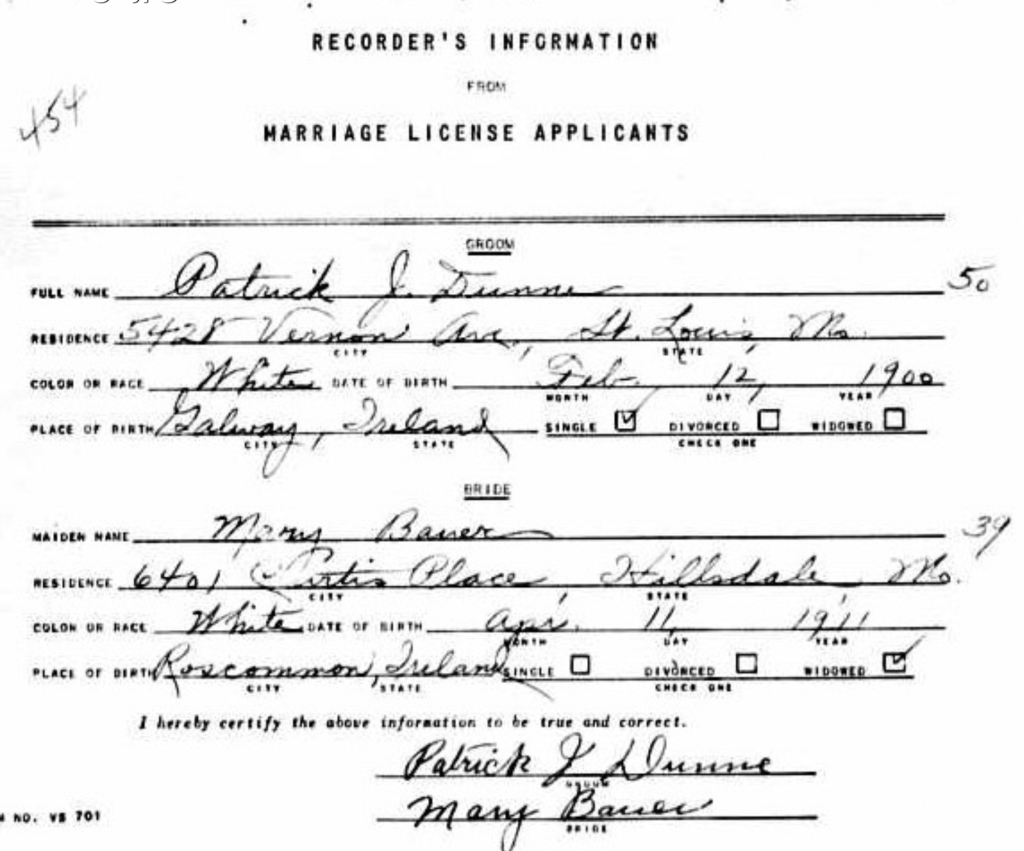 RECORDER'S INFORMATION
FROM
454
MARRIAGE LICENSE APPLICANTS
GROOM
FULL NAME Patrick J. Dunne 50
RESIDENCE 5428 Vernon Ave., St. Louis, Mo.
CITY STATE
COLOR OR RACE White DATE OF BIRTH Feb. 12, 1900
MONTH DAY YEAR
PLACE OF BIRTH Galway, Ireland SINGLE ☑ DIVORCED ☐ WIDOWED ☐
CITY STATE CHECK ONE
BRIDE
MAIDEN NAME Mary Bauer 39
RESIDENCE 6401 Curtis Place, Hillsdale, Mo.
CITY STATE
COLOR OR RACE White DATE OF BIRTH Apr. 11, 1911
MONTH DAY YEAR
PLACE OF BIRTH Roscommon, Ireland SINGLE ☐ DIVORCED ☐ WIDOWED ☑
CITY STATE CHECK ONE
I hereby certify the above information to be true and correct.
Patrick J Dunne
GROOM
Mary Bauer
NO. VS 701
BRIDE